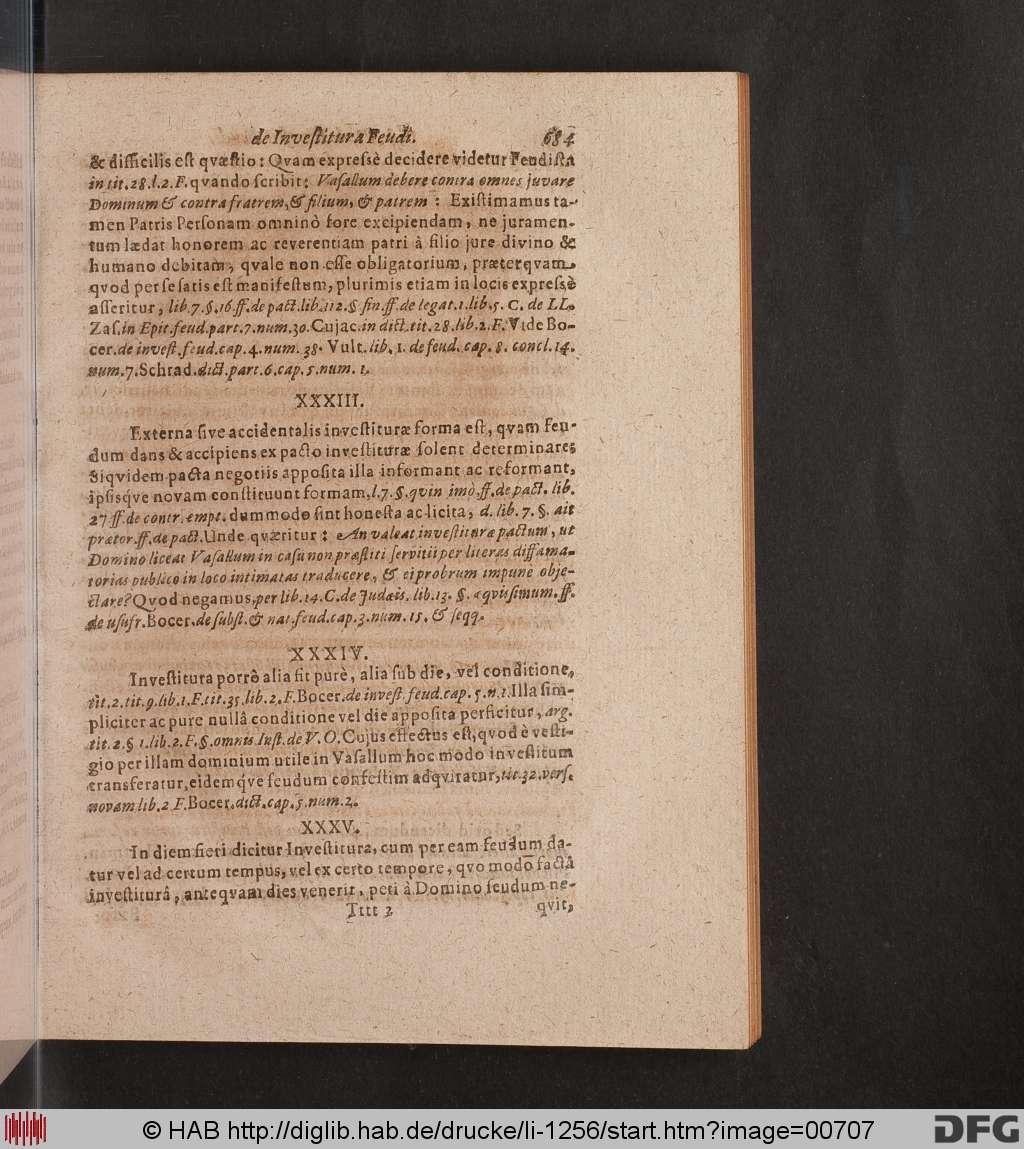 de Investitura Feudi. 684
& difficilis est qvæstio: Qvam expressè decidere videtur Feudista
in tit. 28. l. 2. F. qvando scribit: Vasallum debere contra omnes juvare
Dominum & contra fratrem, & filium, & patrem: Existimamus ta-
men Patris Personam omninò fore excipiendam, ne juramen-
tum lædat honorem ac reverentiam patri à filio jure divino &
humano debitam, qvale non esse obligatorium, præterqvam
qvod per se satis est manifestum, plurimis etiam in locis expressè
asseritur, lib. 7. §. 16. ff. de pact. lib. 112. § fin. ff. de legat. 1. lib. 5. C. de LL.
Zas. in Epit. feud. part. 7. num. 30. Cujac. in dict. tit. 28. lib. 2. F. Vide Bo-
cer. de invest. feud. cap. 4. num. 38. Vult. lib. 1. de feud. cap. 8. concl. 14.
num. 7. Schrad. dict. part. 6. cap. 5. num. 1.
XXXIII.
Externa sive accidentalis investituræ forma est, qvam feu-
dum dans & accipiens ex pacto investituræ solent determinare:
Siqvidem pacta negotiis apposita illa informant ac reformant,
ipsisqve novam constituunt formam, l. 7. §. qvin imò, ff. de pact. lib.
27 ff. de contr. empt. dummodo sint honesta ac licita, d. lib. 7. §. ait
prætor. ff. de pact. Unde qværitur: An valeat investituræ pactum, ut
Domino liceat Vasallum in casu non præstiti servitii per literas diffama-
torias publico in loco intimatas traducere, & ei probrum impune obje-
ctare? Qvod negamus, per lib. 14. C. de Judæis. lib. 13. §. æqvissimum. ff.
de usufr. Bocer. de subst. & nat. feud. cap. 3. num. 15. & seqq.
XXXIV.
Investitura porrò alia fit purè, alia sub die, vel conditione,
tit. 2. tit. 9. lib. 1. F. tit. 35. lib. 2. F. Bocer. de invest. feud. cap. 5. n. 1. Illa sim-
pliciter ac pure nullâ conditione vel die apposita perficitur, arg.
tit. 2. § 1. lib. 2. F. §. omnis Inst. de V. O. Cujus effectus est, qvod è vesti-
gio per illam dominium utile in Vasallum hoc modo investitum
transferatur, eidemqve feudum confestim adqviratur, tit. 32. vers.
novam lib. 2 F. Bocer. dict. cap. 5. num. 2.
XXXV.
In diem fieri dicitur Investitura, cum per eam feudum da-
tur vel ad certum tempus, vel ex certo tempore, qvo modo factâ
investiturâ, anteqvam dies venerit, peti à Domino feudum ne-
Tttt 3 qvit,
© HAB http://diglib.hab.de/drucke/li-1256/start.htm?image=00707
DFG